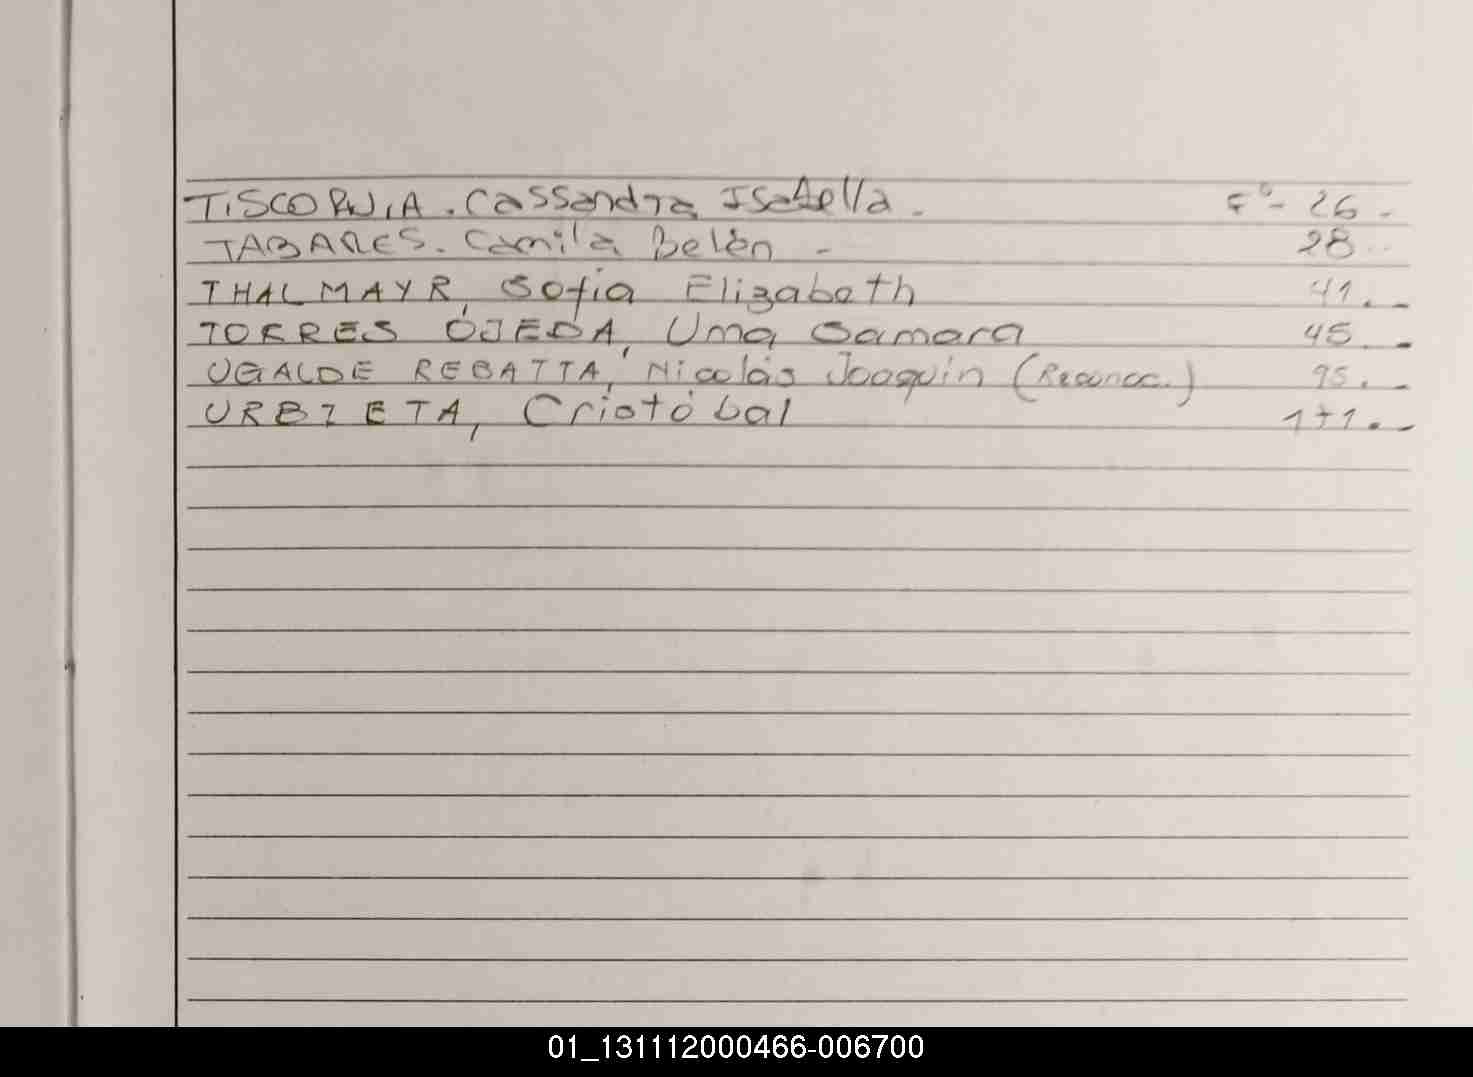 TISCORNIA. Cassandra Isabella. F° - 26 -
TABARES. Camila Belén - 28
THALMAYR, Sofia Elizabeth 41.-
TORRES OJEDA, Uma Samara 45.-
UGALDE REBATTA, Nicolás Joaquin (Reconoc.) 95.-
URBIETA, Cristóbal 171.-
01_131112000466-006700